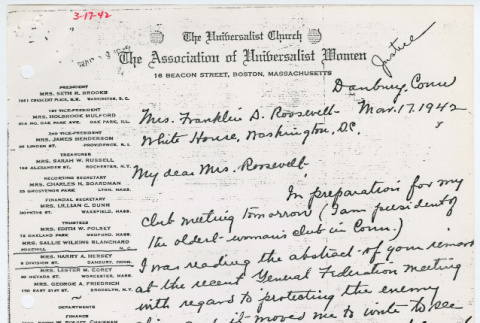 3-17-42
The Universalist Church
The Association of Universalist Women
16 BEACON STREET, BOSTON, MASSACHUSETTS
Justice
Danbury, Conn
Mrs. Franklin D. Roosevelt - Mar. 17. 1942
White House, Washington, D.C.
My dear Mrs. Roosevelt
In preparation for my
club meeting tomorrow (I am president of
the oldest woman's club in Conn.)
I was reading the abstract of your remark
at the recent General Federation meeting
with regard to protecting the enemy
aliens and it moved me to write to see
PRESIDENT
MRS. SETH R. BROOKS
CRESCENT PLACE, N.W. WASHINGTON, D. C.
1ST VICE-PRESIDENT
MRS. HOLBROOK MULFORD
NO. OAK PARK AVE. OAK PARK, ILL.
2ND VICE-PRESIDENT
MRS. JAMES HENDERSON
LINDEN ST. PROVIDENCE, R. I.
TREASURER
MRS. SARAH W. RUSSELL
ALEXANDER ST. ROCHESTER, N.Y.
RECORDING SECRETARY
MRS. CHARLES N. BOARDMAN
25 GROSVENOR PARK LYNN, MASS.
FINANCIAL SECRETARY
MRS. LILLIAN C. DUNN
WAKEFIELD, MASS.
TRUSTEES
MRS. EDITH W. POLSEY
OAKLAND PARK MEDFORD, MASS.
MRS. SALLIE WILKINS BLANCHARD
MRS. HARRY A. HERSEY
DIVISION ST. DANBURY, CONN.
MRS. LESTER M. COREY
NEVADA ST. WORCESTER, MASS.
MRS. GEORGE A. FRIEDRICH
EAST 21ST ST. BROOKLYN, N.Y.
DEPARTMENTS
FINANCE